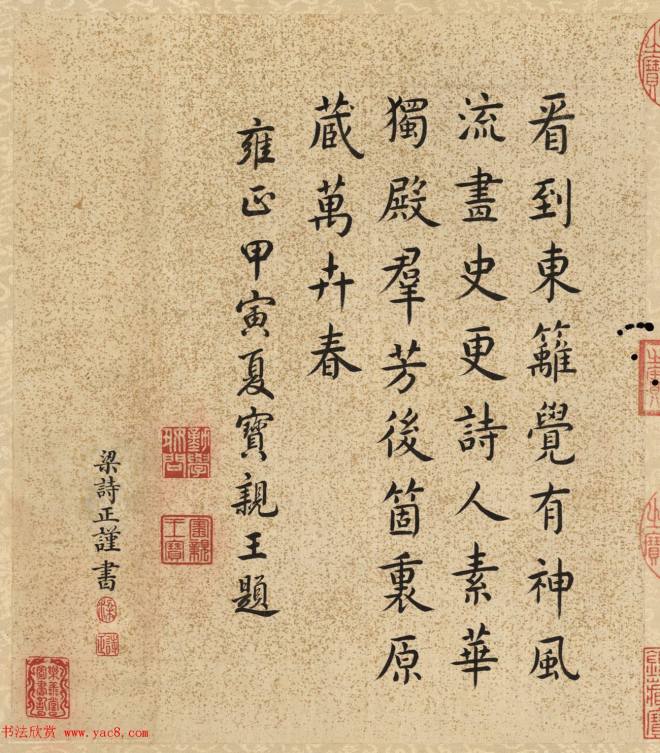 看到東籬覺有神風
流畵史更詩人素華
獨殿羣芳後箇裏原
蔵萬卉春
雍正甲寅夏寶親王題
勤學
好問
寶親
王寶
梁詩正謹書
书法欣赏 www.yac8.com